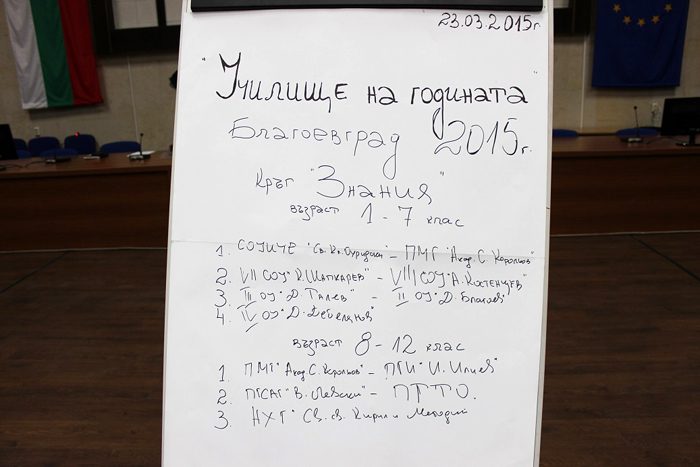 23.03.2015г.
"Училище на годината"
Благоевград 2015г.
Кръг "Знания"
възраст 1-7 клас
1. СОУИЧЕ "Св. Кл. Охридски" - ПМГ "Акад. С. Корольов"
2. VII СОУ "К. Шапкарев" - VIII СОУ "А. Костенцев"
3. III ОУ "Д. Талев" - II ОУ "Д. Благоев"
4. IV ОУ "Д. Дебелянов"
възраст 8-12 клас
1. ПМГ "Акад. С. Корольов" - ПГИ "И. Илиев"
2. ПГСАГ "В. Левски" - ПГТТО.
3. НХГ "Св. св. Кирил и Методий